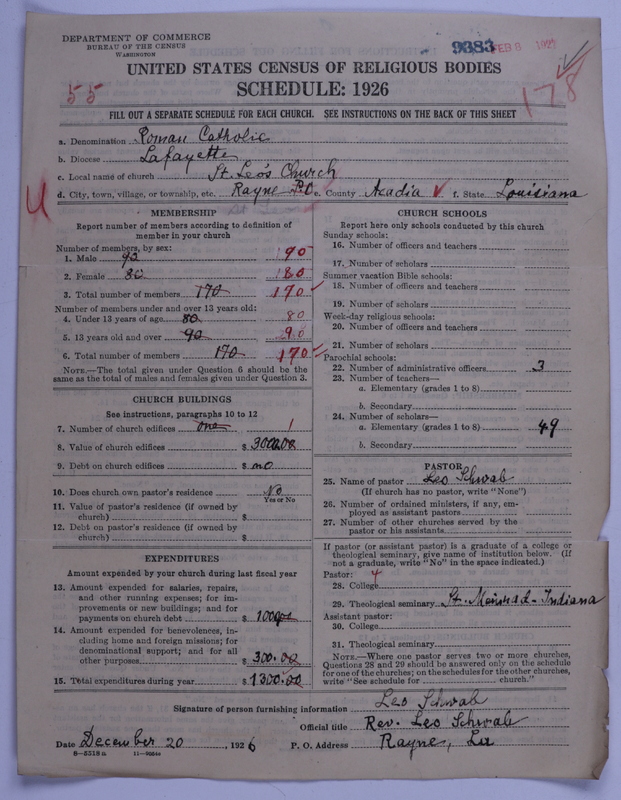 DEPARTMENT OF COMMERCE
BUREAU OF THE CENSUS
WASHINGTON
9383 FEB 8 1927
UNITED STATES CENSUS OF RELIGIOUS BODIES
SCHEDULE: 1926
55
178
FILL OUT A SEPARATE SCHEDULE FOR EACH CHURCH. SEE INSTRUCTIONS ON THE BACK OF THIS SHEET
a. Denomination Roman Catholic
b. Diocese Lafayette
c. Local name of church St. Leo's Church
d. City, town, village, or township, etc. Rayne P.O e. County Acadia f. State Louisiana
4
MEMBERSHIP
Report number of members according to definition of
member in your church
Number of members, by sex:
1. Male 90 90
2. Female 80 80
3. Total number of members 170 170
Number of members under and over 13 years old:
4. Under 13 years of age 80 80
5. 13 years old and over 90 90
6. Total number of members 170 170
NOTE.—The total given under Question 6 should be the
same as the total of males and females given under Question 3.
CHURCH BUILDINGS
See instructions, paragraphs 10 to 12
7. Number of church edifices one 1
8. Value of church edifices $ 3000.00
9. Debt on church edifices $ no
10. Does church own pastor's residence No
Yes or No
11. Value of pastor's residence (if owned by
church) $
12. Debt on pastor's residence (if owned by
church) $
EXPENDITURES
Amount expended by your church during last fiscal year
13. Amount expended for salaries, repairs,
and other running expenses; for im-
provements or new buildings; and for
payments on church debt $ 1000.00
14. Amount expended for benevolences, in-
cluding home and foreign missions; for
denominational support; and for all
other purposes $ 300.00
15. Total expenditures during year $ 1300.00
CHURCH SCHOOLS
Report here only schools conducted by this church
Sunday schools:
16. Number of officers and teachers
17. Number of scholars
Summer vacation Bible schools:
18. Number of officers and teachers
19. Number of scholars
Week-day religious schools:
20. Number of officers and teachers
21. Number of scholars
Parochial schools:
22. Number of administrative officers 3
23. Number of teachers—
a. Elementary (grades 1 to 8)
b. Secondary
24. Number of scholars—
a. Elementary (grades 1 to 8) 49
b. Secondary
PASTOR
25. Name of pastor Leo Schwab
(If church has no pastor, write "None")
26. Number of ordained ministers, if any, em-
ployed as assistant pastors
27. Number of other churches served by the
pastor or his assistants
If pastor (or assistant pastor) is a graduate of a college or
theological seminary, give name of institution below. (If
not a graduate, write "No" in the space indicated.)
Pastor: 4
28. College
29. Theological seminary St. Meinrad-Indiana
Assistant pastor:
30. College
31. Theological seminary
NOTE.—Where one pastor serves two or more churches,
Questions 28 and 29 should be answered only on the schedule
for one of the churches; on the schedules for the other churches,
write "See schedule for church."
Signature of person furnishing information Leo Schwab
Official title Rev. Leo Schwab
Date December 20, 1926 P. O. Address Rayne, La
8—5518a